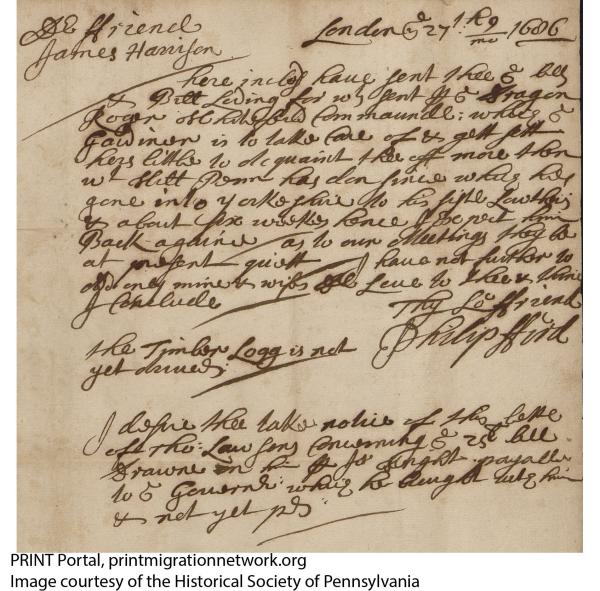 De ffriend
James Harrison
London ye 27th 9/mo 1686
here inclosd have sent thee ye bill
& Bill Lading for wt sent pr ye Dragon
Roger Commaunder: which ye
Gardiner is to take Care of & gett sett
heres little to acquaint thee off more then
wt Will Penn has don since which hes
gone into Yorkeshire to his
& about six weekes hence I Expect him
Back againe as to our Meetings they be
at present quiett I have not further to
add only mine & wifs De Love to thee & thine
I Conclude
Thy Lo ffriend
Philip fford
the Timber Logg is not
yet arived:
I desire thee take notice of this
of Tho: Concerning ye 25£ bill
Drawne on him pr payable
to ye Governr: which he with him
& not yet pd:
PRINT Portal, printmigrationnetwork.org
Image courtesy of the Historical Society of Pennsylvania